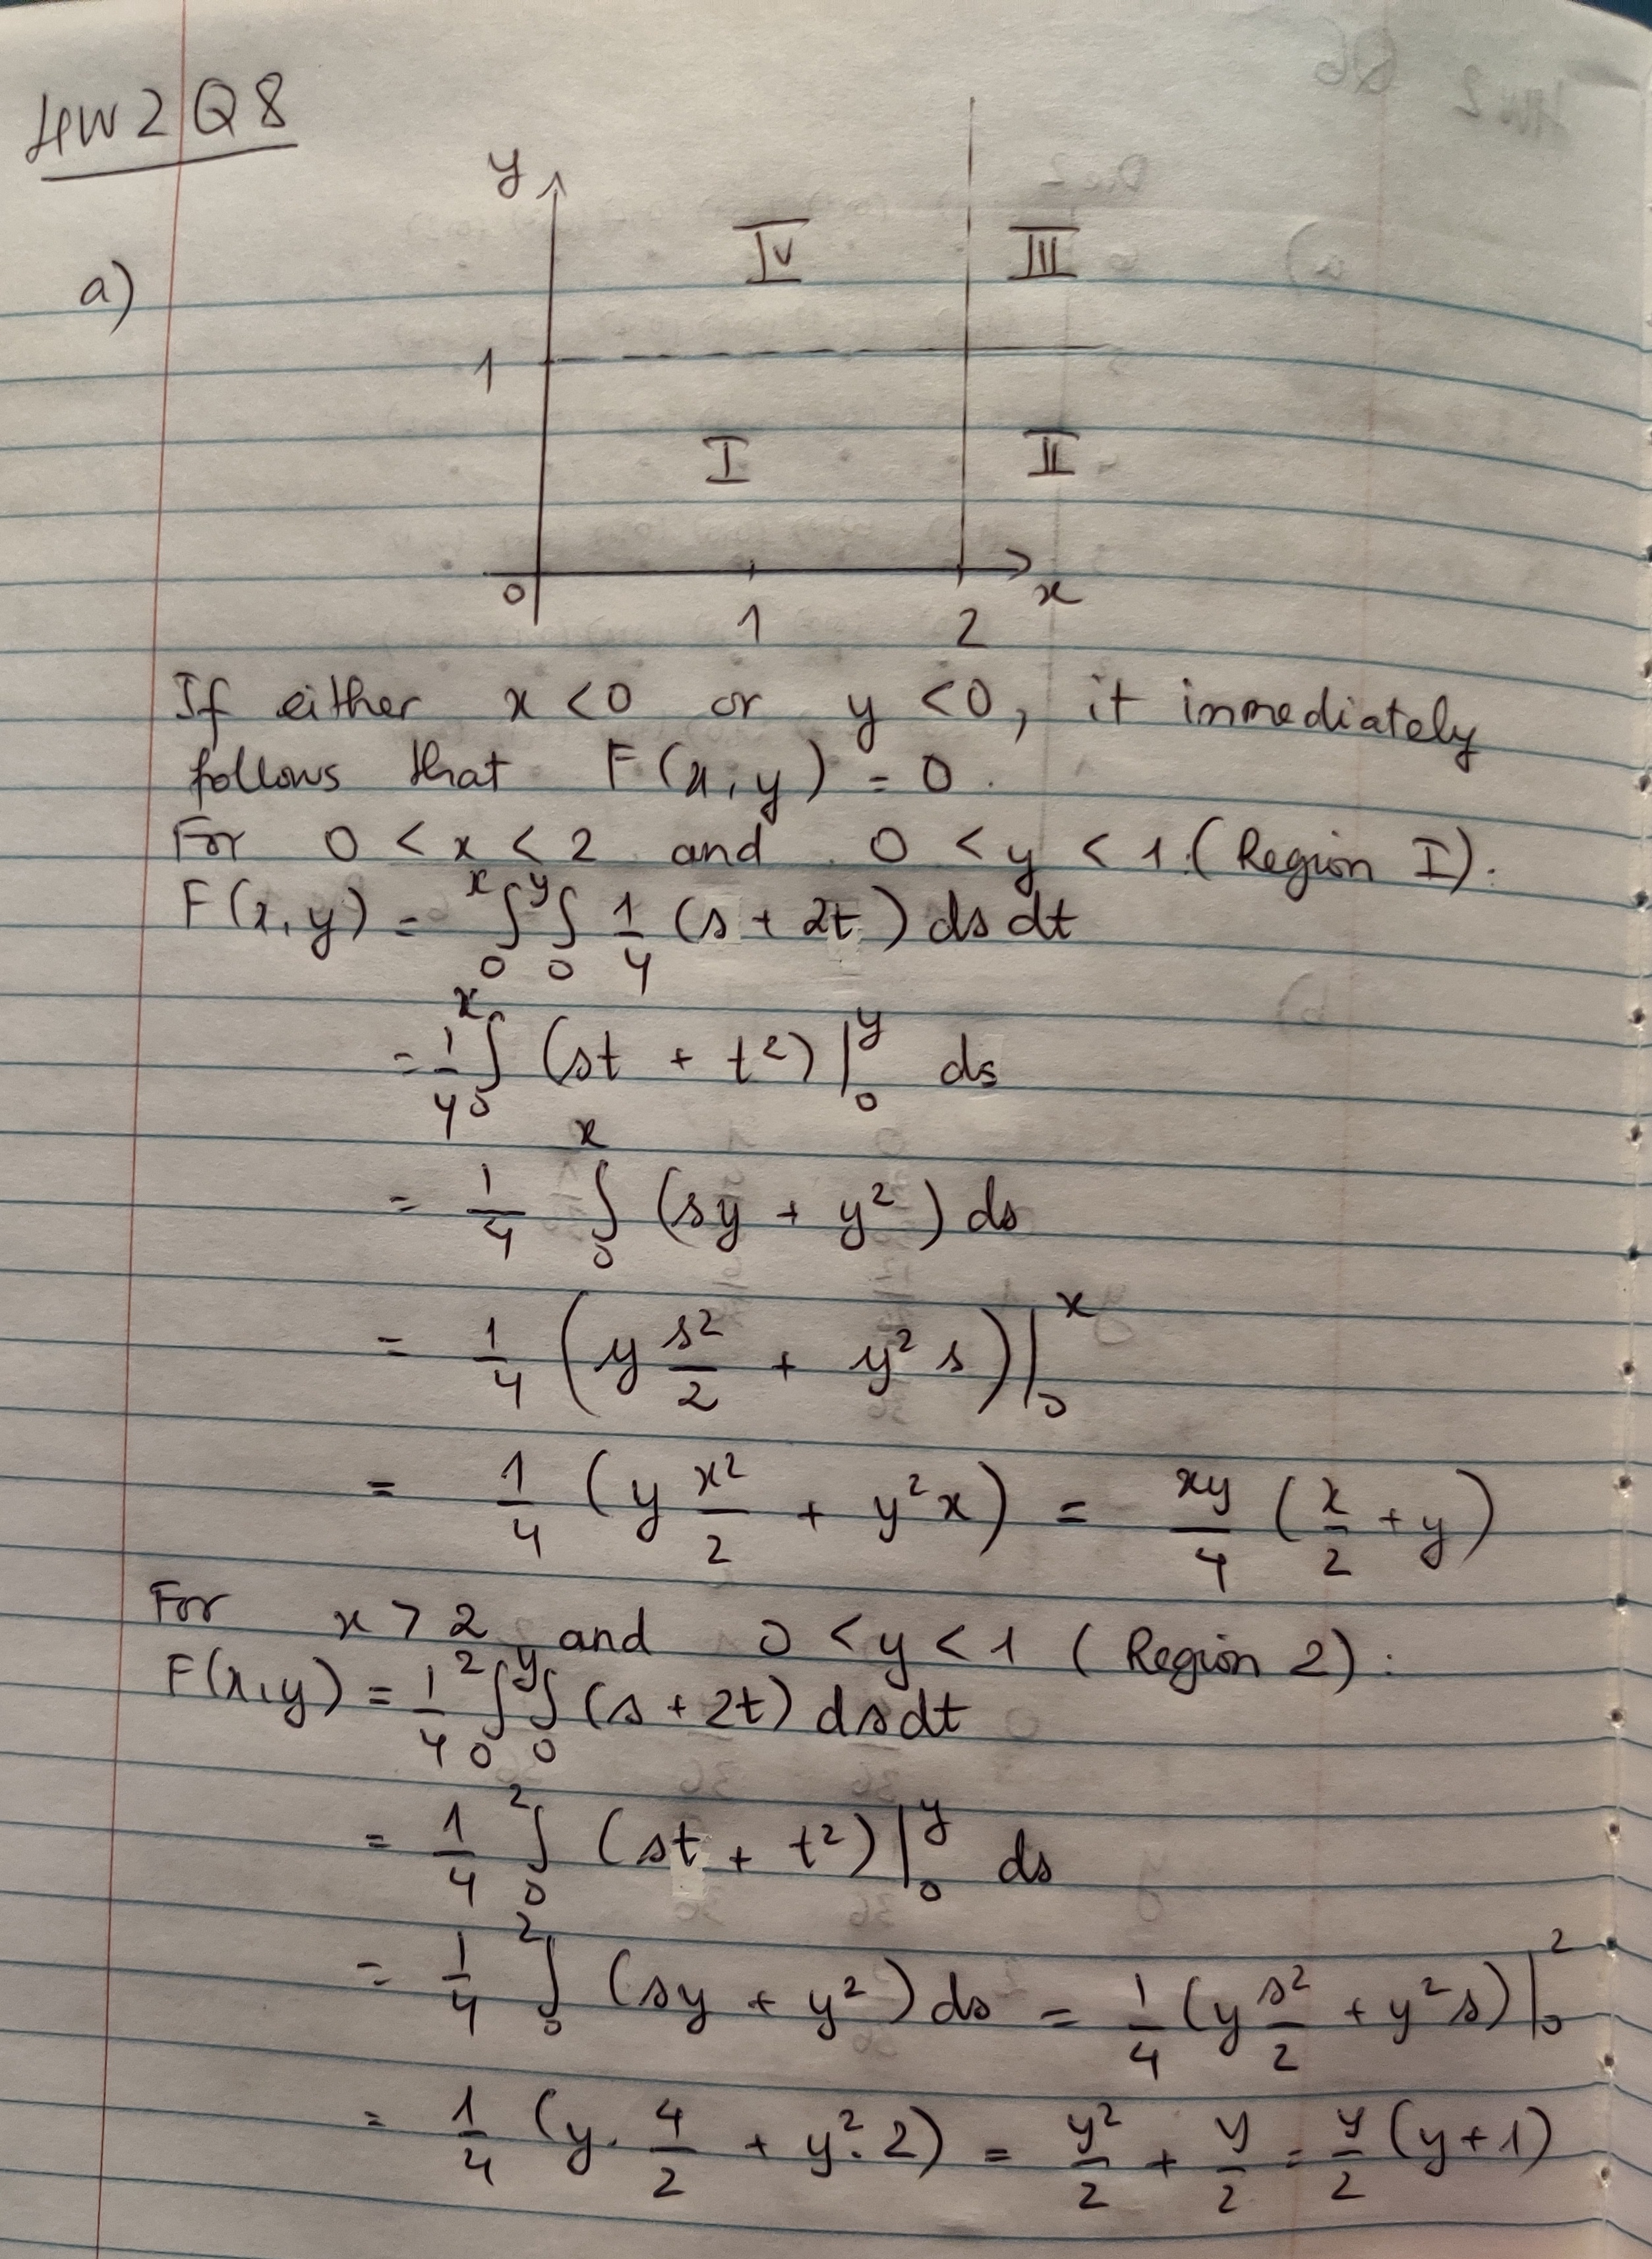 HW2 Q8
a)
y
IV III
1
I II
0 1 2 x
If either x < 0 or y < 0, it immediately
follows that F(x,y) = 0.
For 0 < x < 2 and 0 < y < 1 (Region I):
F(x,y) = ∫₀ˣ ∫₀ʸ 1/4 (s + 2t) ds dt
= 1/4 ∫₀ˣ (st + t²) |₀ʸ ds
= 1/4 ∫₀ˣ (sy + y²) ds
= 1/4 (y s²/2 + y² s) |₀ˣ
= 1/4 (y x²/2 + y²x) = xy/4 (x/2 + y)
For x > 2 and 0 < y < 1 (Region 2):
F(x,y) = 1/4 ∫₀² ∫₀ʸ (s + 2t) ds dt
= 1/4 ∫₀² (st + t²) |₀ʸ ds
= 1/4 ∫₀² (sy + y²) ds = 1/4 (y s²/2 + y² s) |₀²
= 1/4 (y · 4/2 + y² · 2) = y²/2 + y/2 = y/2 (y + 1)